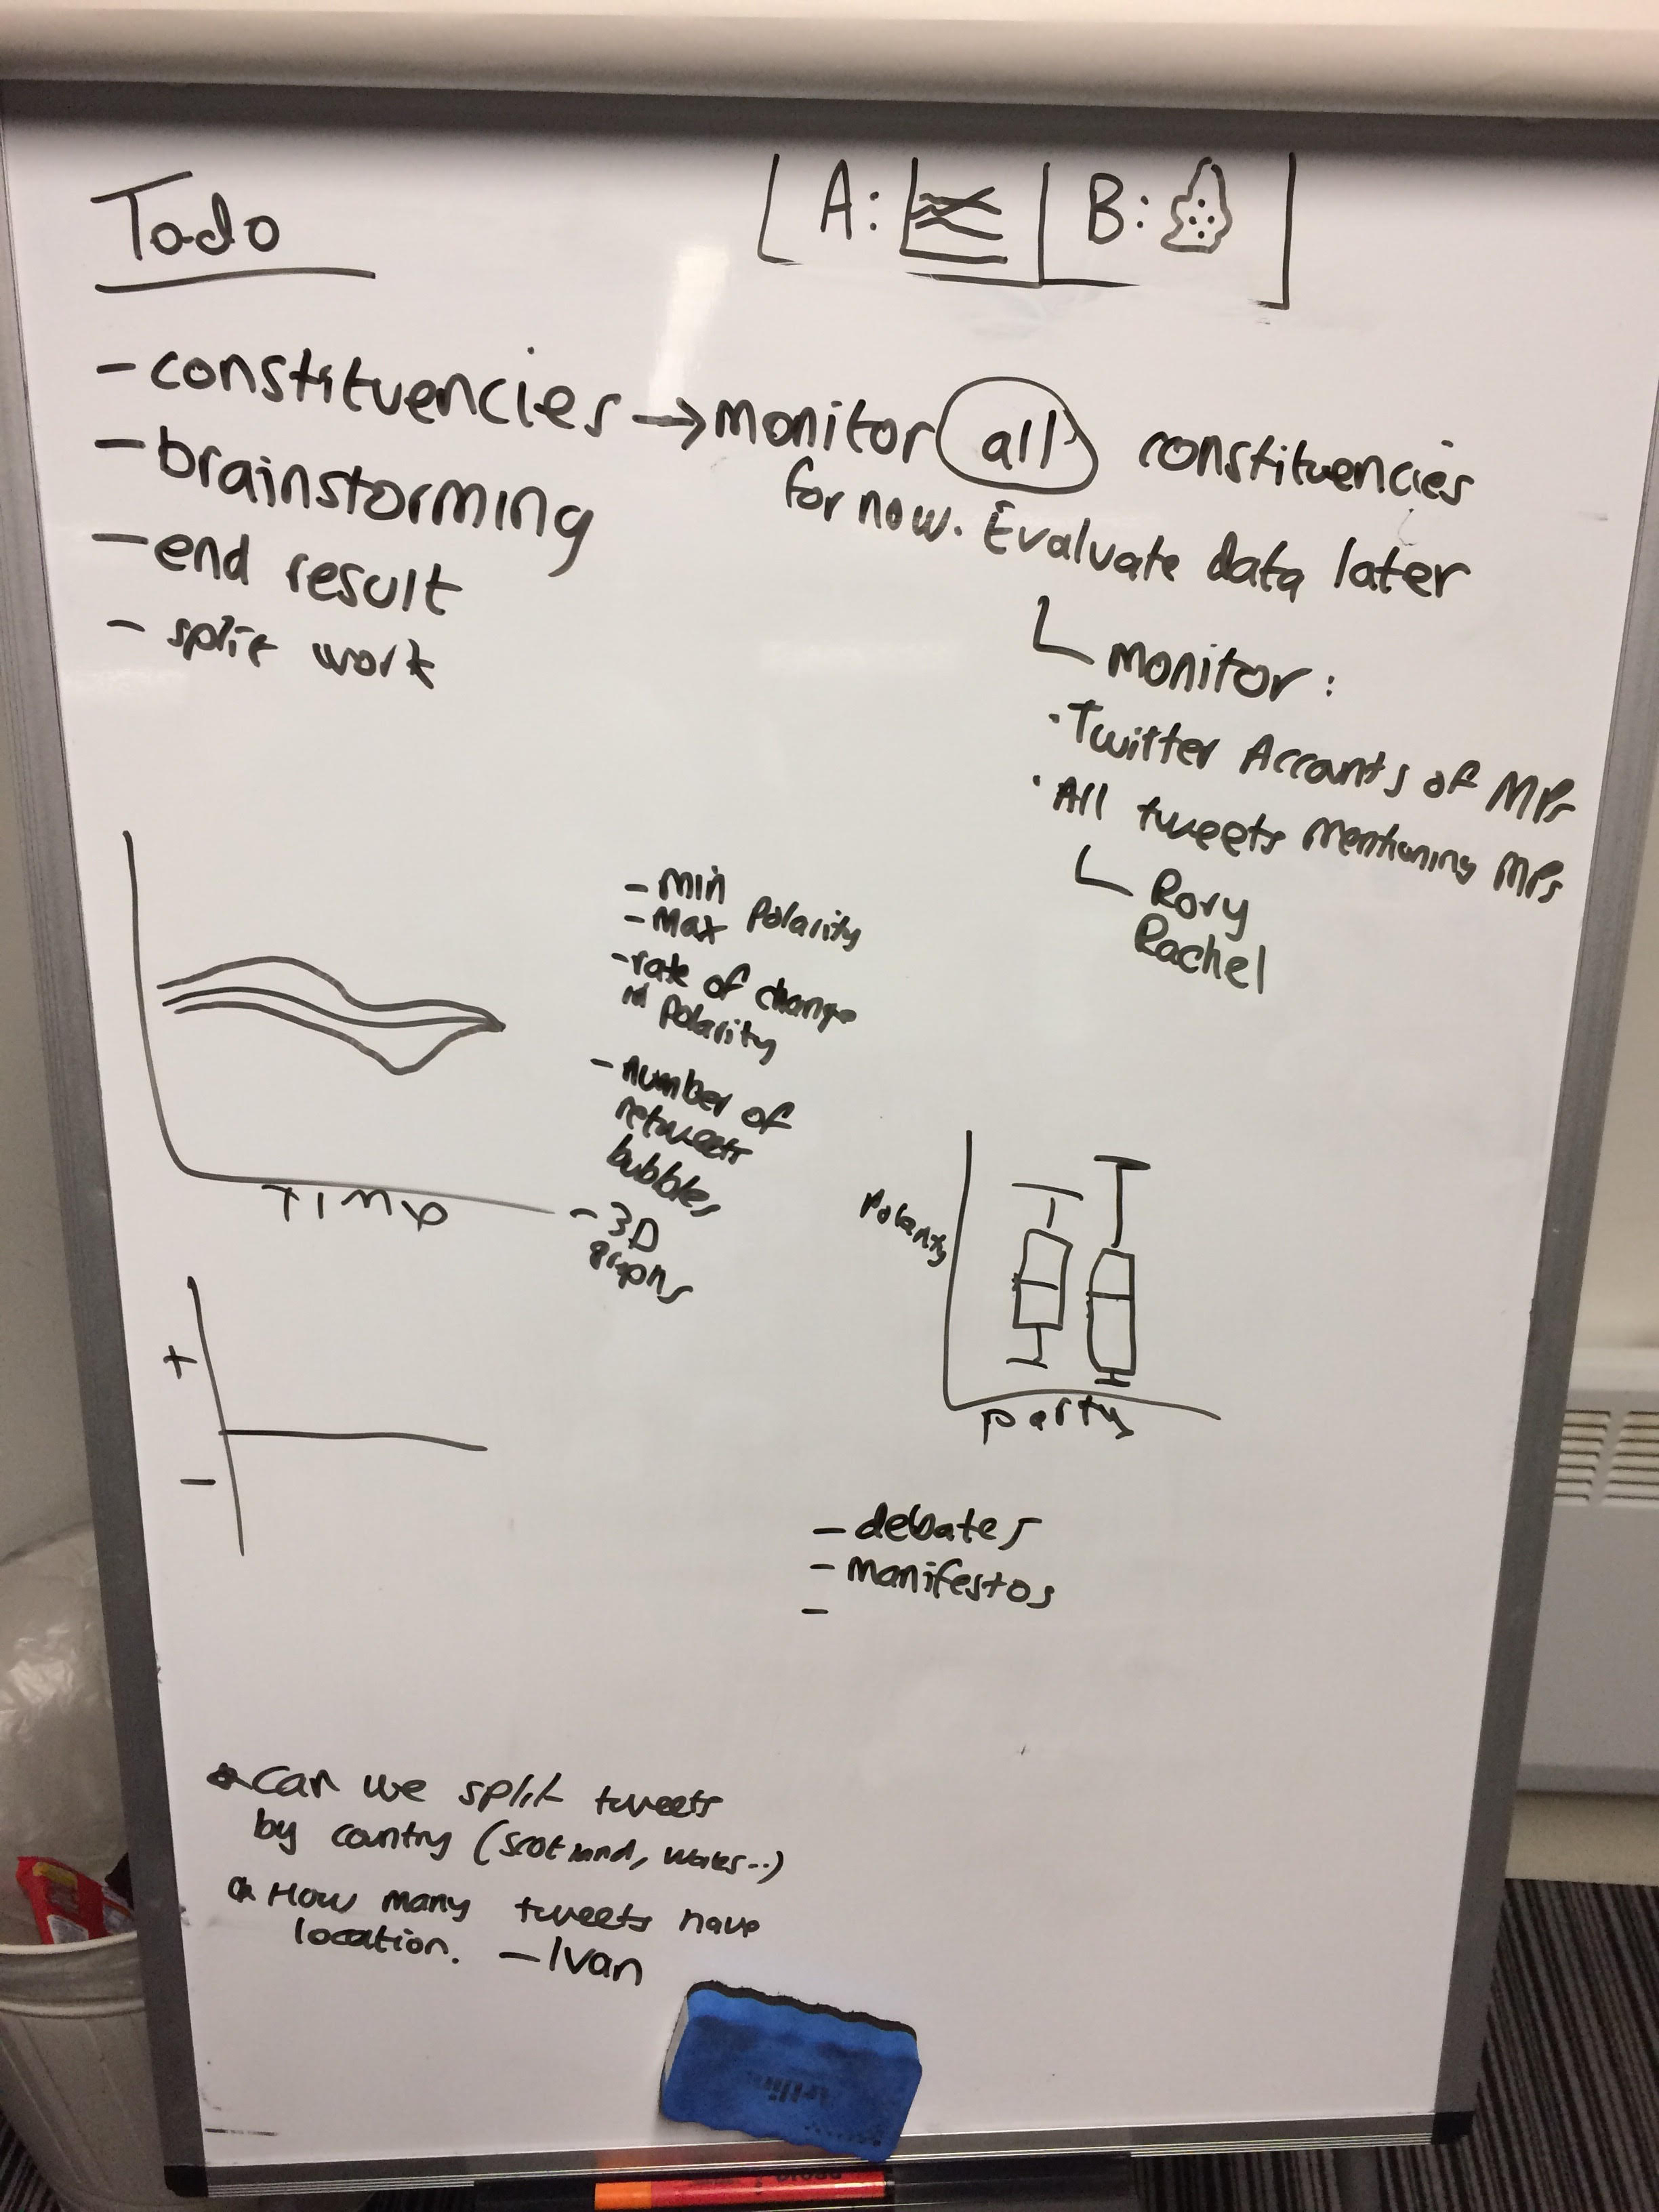 Todo
A:
B:
- constituencies → monitor all constituencies
for now. Evaluate data later
- brainstorming
- end result
- split work
monitor:
· Twitter Accounts of MPs
· All tweets Mentioning MPs
Rory
Rachel
- Min
- Max Polarity
- rate of change
in Polarity
- number of
retweets
bubbles
- 3D
graphs
Time
+
-
Polarity
party
- debates
- manifestos
-
Can we split tweets
by country (Scotland, Wales..)
How many tweets have
location. - Ivan